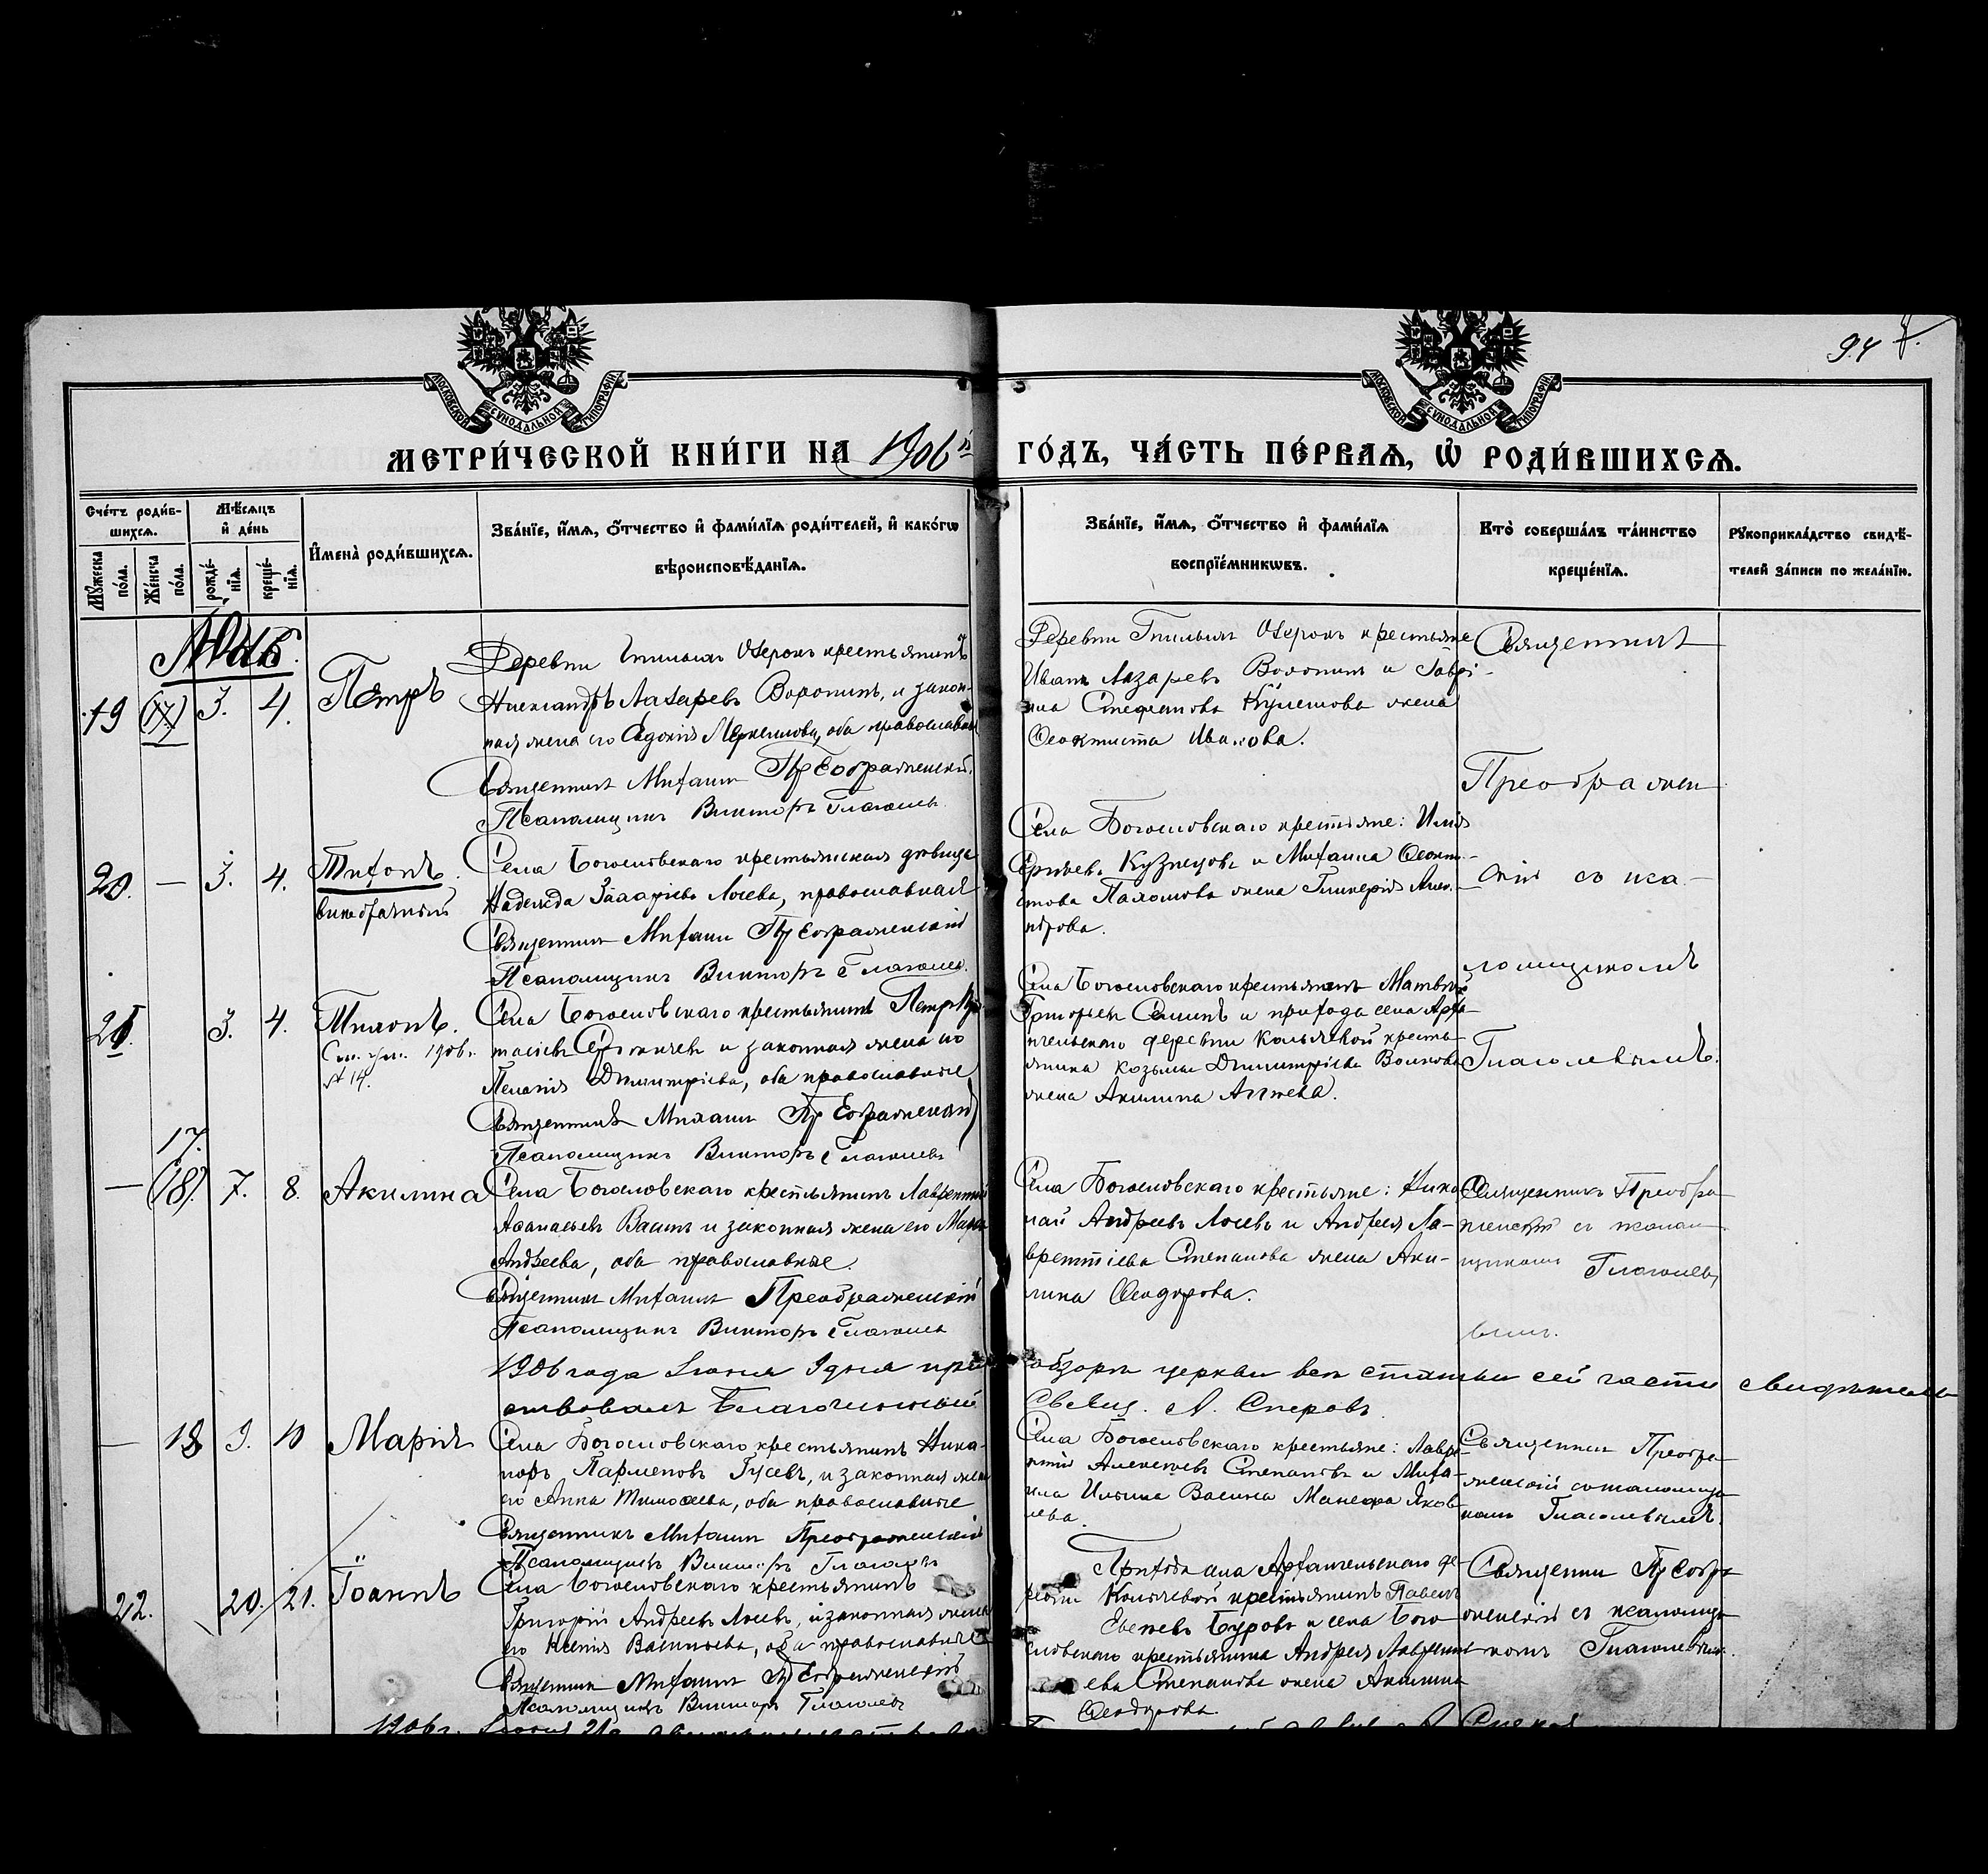 94
МОСКОВСКОЙ СѴНОДАЛЬНОЙ ТИПОГРАФІИ
МОСКОВСКОЙ СѴНОДАЛЬНОЙ ТИПОГРАФІИ
МЕТРИ́ЧЕСКОЙ КНИ́ГИ НА 1906й ГО́ДЪ, ЧА́СТЬ ПЕ́РВАѦ, Ѡ҆ РОДИ́ВШИХСѦ.
Сче́тъ роди́в-
шихсѧ.
Мꙋ́жеска по́ла.
Же́нска по́ла.
Мѣ́сѧцъ
и҆ де́нь
рожде́-
нїѧ.
креще́-
нїѧ.
И҆мена̀ роди́вшихсѧ.
Зва́нїе, и҆́мѧ, ѻ҆́тчество и҆ фами́лїѧ роди́телей, и҆ како́гѡ
вѣроисповѣ́данїѧ.
Зва́нїе, и҆́мѧ, ѻ҆́тчество и҆ фами́лїѧ
воспрїе́мникѡвъ.
Кто̀ соверша́лъ та́инство
креще́нїѧ.
Рꙋкоприкла́дство свидѣ́-
телей за́писи по жела́нїю.
19 3. 4. Петръ
Деревни Озерокъ крестьянинъ
Александръ Лазаревъ Воронинъ, и закон-
ная жена его Евдокія, оба православн
Священникъ Михаилъ Преображенскій.
Псаломщикъ Викторъ Глаголевъ
Деревни Озерокъ крестьяне
Иванъ Лазаревъ Воронинъ и Гаврі-
ила Стефанова Кулешова жена
Ѳеоктиста Иванова.
Священникъ
Преображен
скій съ пса-
ломщикомъ
Глаголевымъ.
20. — 3. 4. Тихонъ.
внебрачный
Села Богословскаго крестьянская дѣвица
Надежда Лосева, православная
Священникъ Михаилъ Преображенскій
Псаломщикъ Викторъ Глаголевъ.
Села Богословскаго крестьяне: Илія
Кузнецовъ и Михаила Ѳеокти-
стова Пахомова жена Гликерія Алек-
ндрова.
21. 3. 4. Тихонъ.
1906.
№ 14.
Села Богословскаго крестьянинъ Петръ
и законная жена его
Пелагія Димитріева, оба православные
Священникъ Михаилъ Преображенскій
Псаломщикъ Викторъ Глаголевъ
Села Богословскаго крестьянинъ Матвѣй
Григорьевъ и прихода села Арха-
нгельскаго деревни кресть-
янина Козьмы Димитріева Волкова
жена Акилина
17.
— (18). 7. 8. Акилина
Села Богословскаго крестьянинъ Лаврентій
Аѳанасьевъ и законная жена его Марія
Андреева, оба православные.
Священникъ Михаилъ Преображенскій
Псаломщикъ Викторъ Глаголевъ
Села Богословскаго крестьяне: Нико-
лай Андреевъ Лосевъ и Андрея Ла-
врентіева Степанова жена Аки-
лина Ѳеодорова.
Священникъ Преобра
женскій съ псалом
щикомъ Глаголев
вымъ.
1906 года Іюня 9 дня при обзорѣ церкви всѣ статьи сей части свидѣтель
ствовалъ Благочинный Свящ. А. Сперовъ.
— 18 9. 10 Марія
Села Богословскаго крестьянинъ Ника-
норъ Парменовъ Гусевъ, и законная жена
его Анна Тимоѳеева, оба православные
Священникъ Михаилъ Преображенскій
Псаломщикъ Викторъ Глаголевъ
Села Богословскаго крестьяне: Лавре-
нтій Алексѣевъ Степановъ и Миха-
ила Ильина Васина Яков-
лева.
Священникъ Преобра
женскій съ псаломщи
комъ Глаголевымъ.
22. 20. 21. Іоаннъ
Села Богословскаго крестьянинъ
Григорій Андреевъ Лосевъ, и законная жена
его Ксенія Васильева, оба православные
Священникъ Михаилъ Преображенскій
Псаломщикъ Викторъ Глаголевъ
Прихода села Архангельскаго де-
ревни крестьянинъ Павелъ
Буровъ и села Бого-
словскаго крестьянина Андрея Лаврент
ева Степанова жена Акилина
Ѳеодорова.
Священникъ Преобра
женскій съ псаломщи
комъ Глаголевым.
1906г.